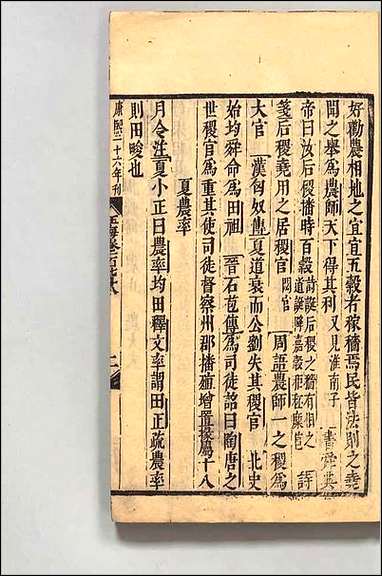 好勸農相地之宜宜五穀者稼穡焉民皆法則之堯
聞之舉為農師天下得其利又見淮南子 書舜典
帝曰汝后稷播時百穀詩誕后稷之穡有相之道誕降嘉穀維秬維秠 詩
箋后稷堯用之居稷官閟宮 周語農師一之稷為
大官 漢匈奴傳夏道衰而公劉失其稷官 北史
始均舜命為田祖 晉石苞傳為司徒詔曰陶唐之
世稷官為重其使司徒督察州郡播殖增置掾屬十八
夏農率
月令注夏小正曰農率均田釋文率謂田正疏農率
則田畯也
康熙二十六年刊
玉海卷一百 二